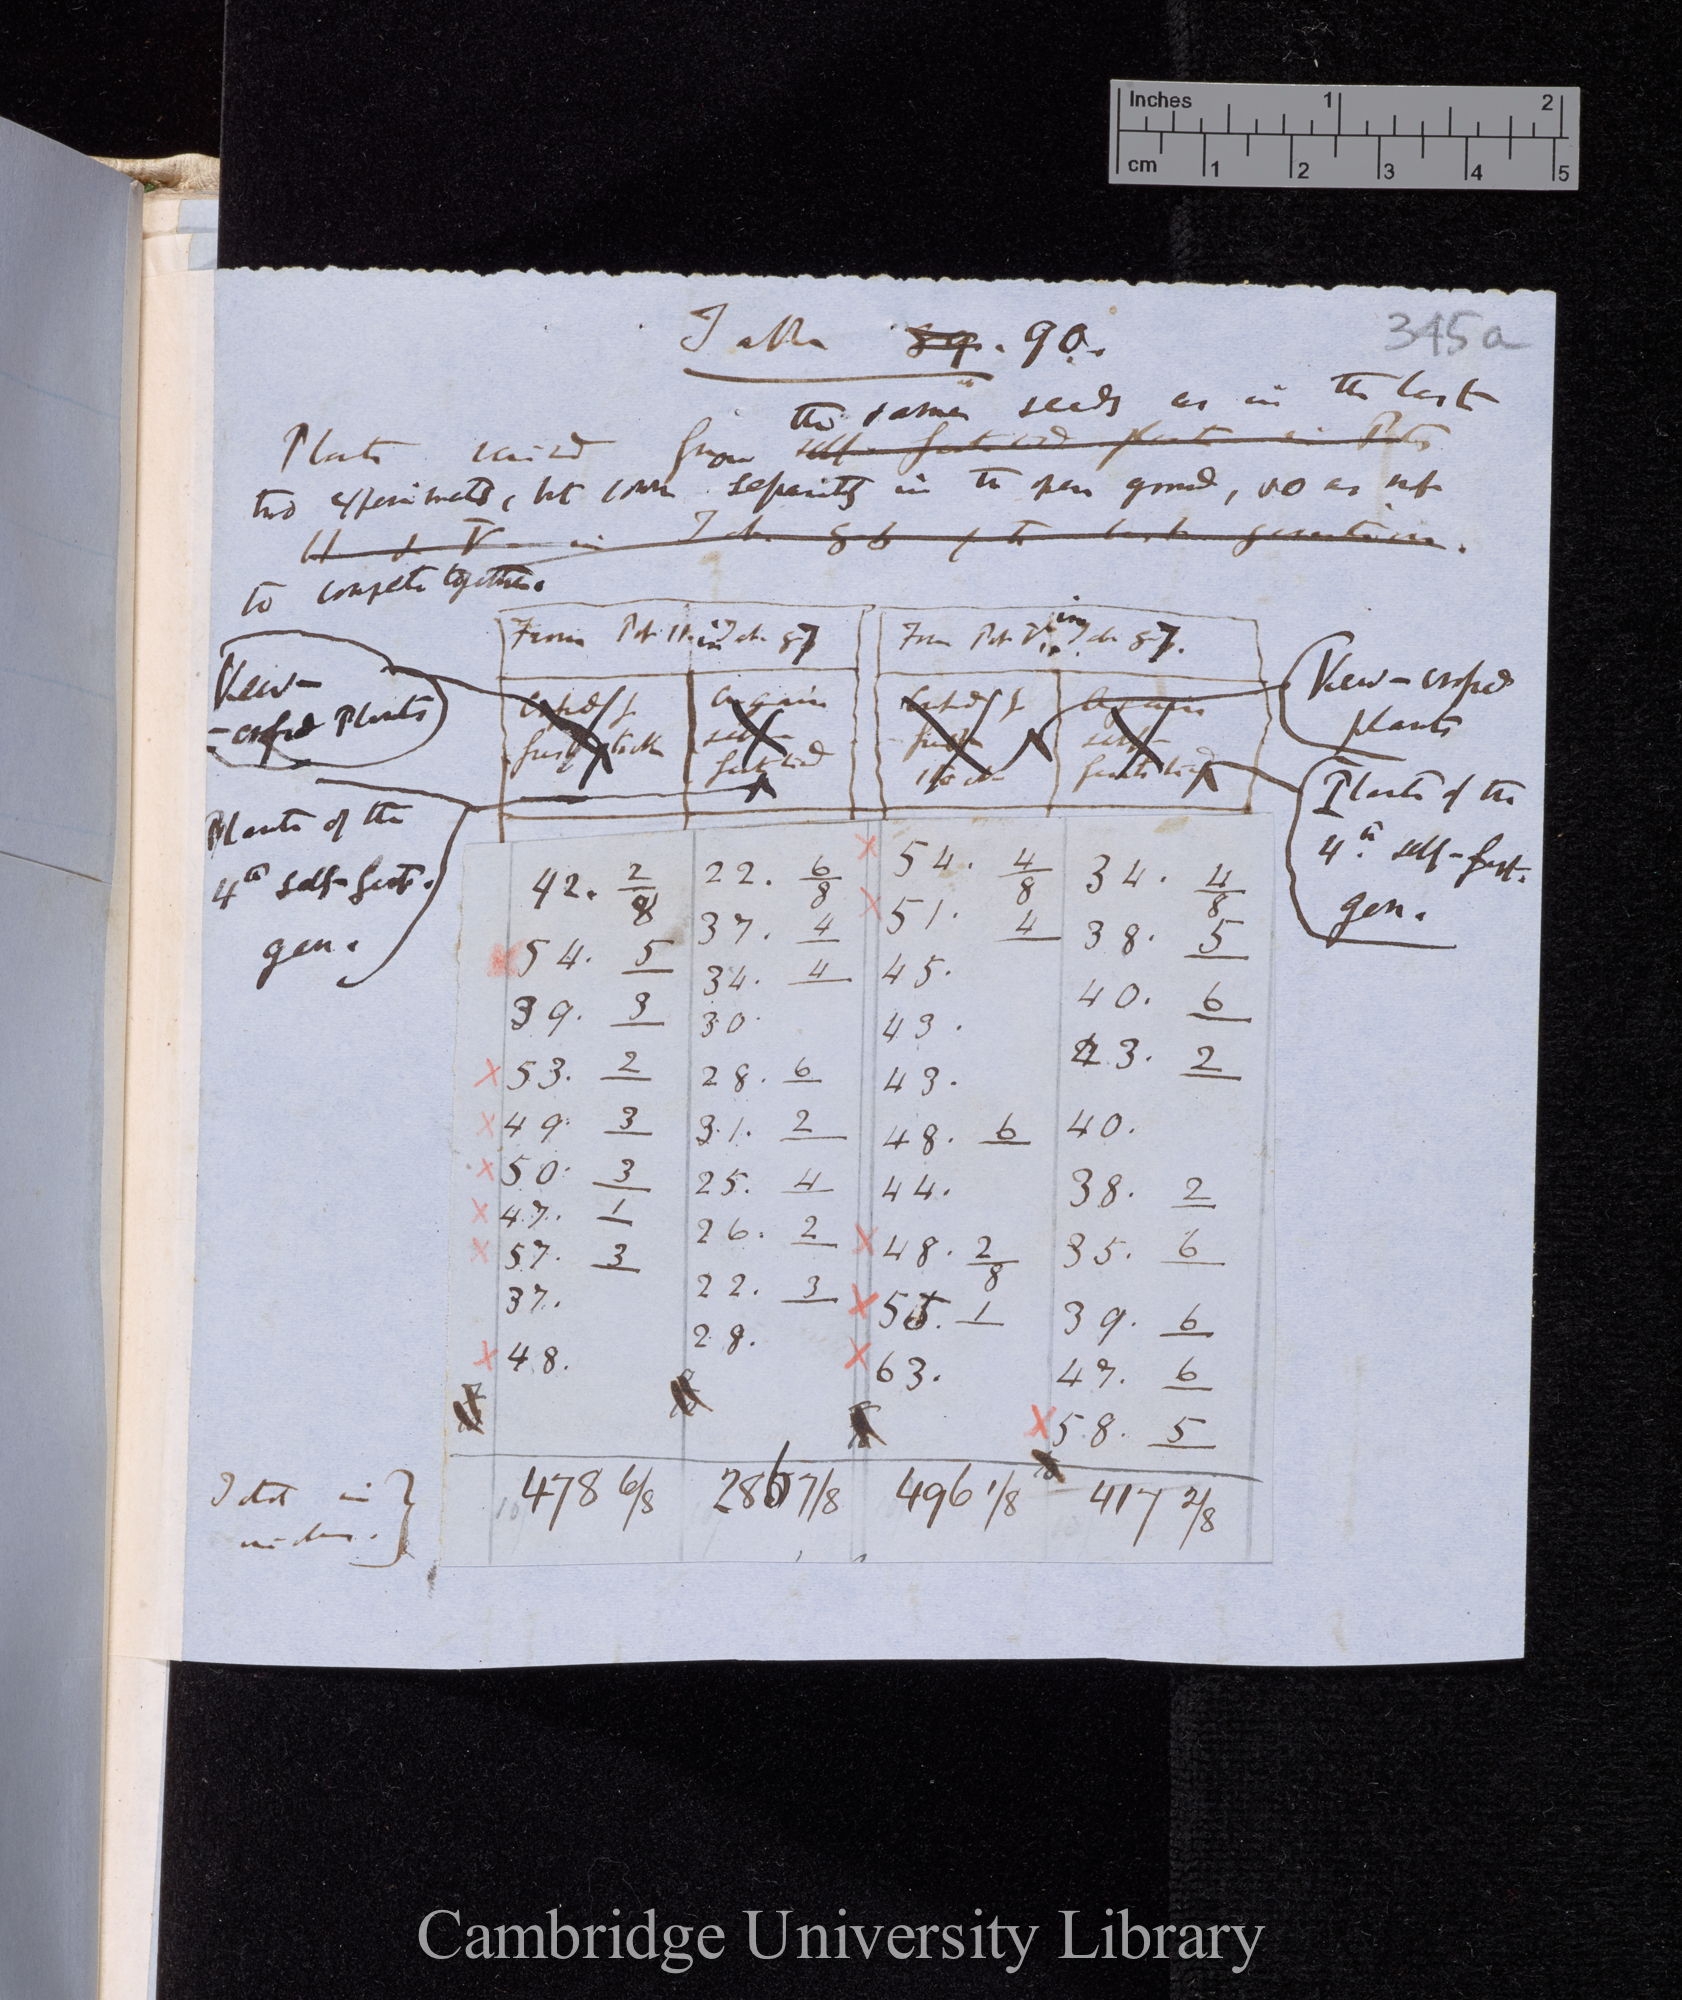 Inches 1 2
cm 1 2 3 4 5
345a
Table 89. 90.
the same seeds as in the last
Plants raised from self-fertilised plants in Pots
two experiments, but sown separately in the open ground, so as not
to compete together.
From Pot II. in Table 87
From Pot V. in Table 87.
Kew-
-crossed Plants
Kew-crossed
plants
Crossed by
fresh stock
again
self-
fertilised
Crossed by
fresh
stock
Again
self-
fertilised
Plants of the
4th self-fert.
gen.
Plants of the
4th self-fert.
gen.
42. 2/8 22. 6/8 x 54. 4/8 34. 4/8
x 54. 5 37. 4 x 51. 4 38. 5
39. 3 34. 4 45. 40. 6
x 53. 2 30. 43. 43. 2
x 49. 3 28. 6 43. 40.
x 50. 3 31. 2 48. 6 38. 2
x 47. 1 25. 4 44. 35. 6
x 57. 3 26. 2 x 48. 2/8 39. 6
37. 22. 3 x 55. 1 47. 6
x 48. 28. x 63. x 58. 5
Total in
inches. } 478 6/8 286 7/8 496 1/8 417 2/8
Cambridge University Library